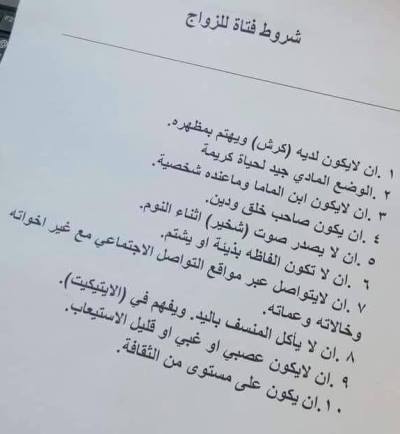 شروط فتاة للزواج
١ .ان لايكون لديه (كرش) ويهتم بمظهره.
٢ .الوضع المادي جيد لحياة كريمة
٣ .ان لايكون ابن الماما وماعنده شخصية.
٤ .ان يكون صاحب خلق ودين.
٥ .ان لا يصدر صوت (شخير) اثناء النوم.
٦ .ان لا تكون الفاظه بذيئة او يشتم.
٧ .ان لايتواصل عبر مواقع التواصل الاجتماعي مع غير اخواته
وخالاته وعماته.
٨ .ان لا يأكل المنسف باليد. ويفهم في (الايتيكيت).
٩ .ان لايكون عصبي او غبي او قليل الاستيعاب.
١٠.ان يكون على مستوى من الثقافة.